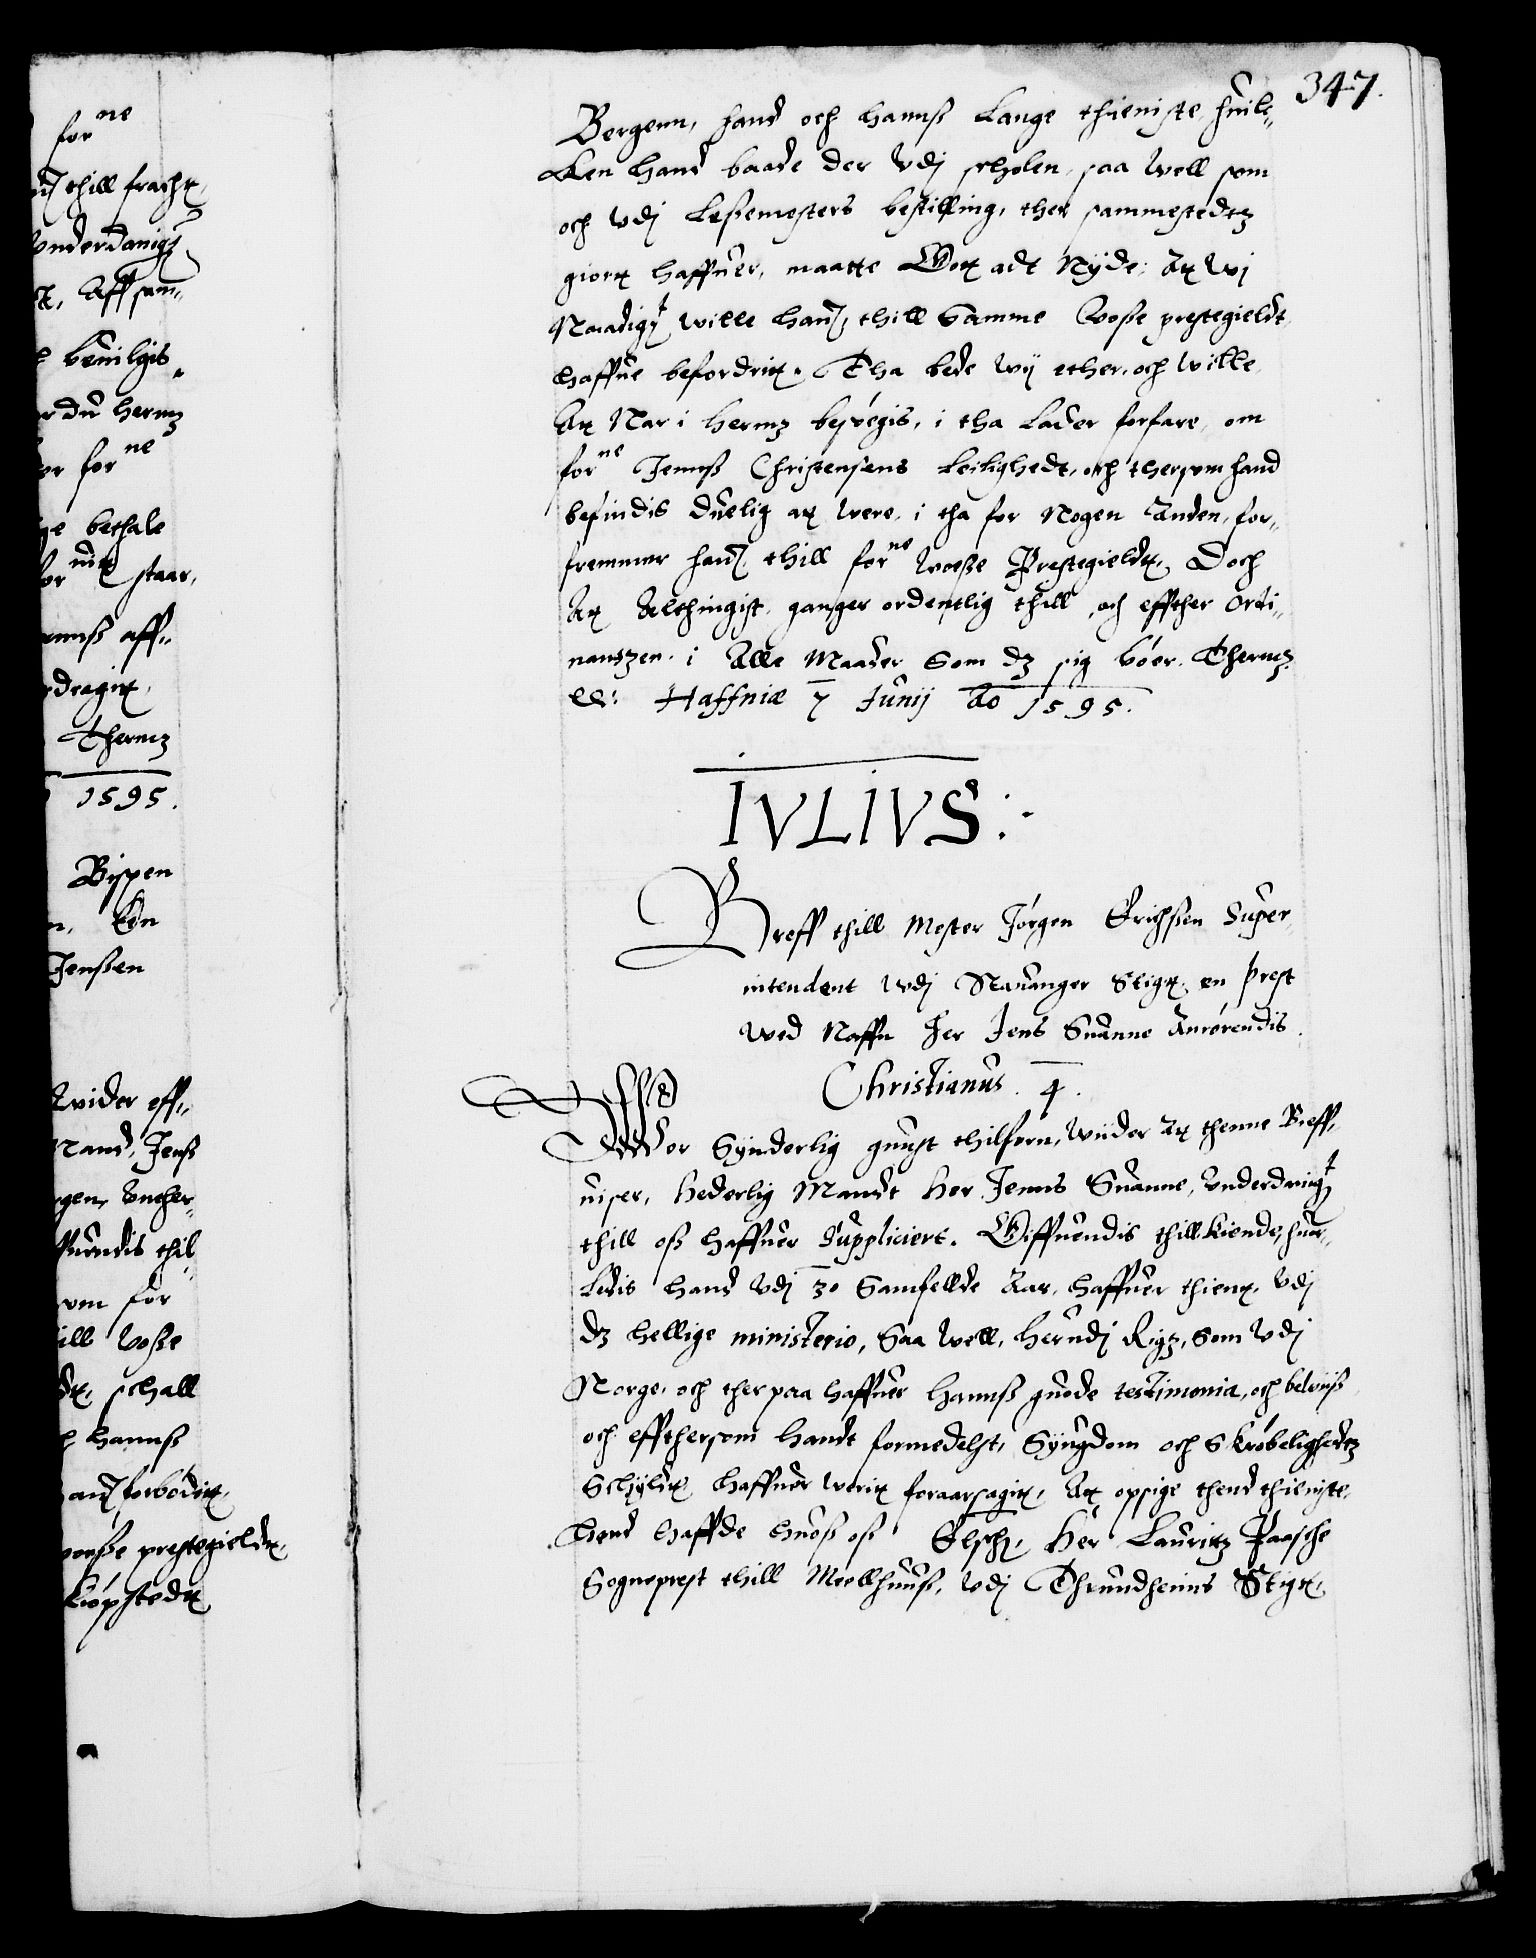 for ne
thill fracht,
vnderdanigst
Aff sam„
beuilgis
er du hermz
for ne
ge bethale
for ndt staar,
hannß aff„
rdragit,
Thermz
1595.
Bispen
En
Jenßen
Avider eff„
Mand, Jenß
gen, Vnder„
ffuendis thil„
om for
ill Voße
dt, schall
hannß
forbödit,
woeße prestegieldt,
kiöpstedt
347.
Bergenn, hand och hannß lange thieniste, huil„
cken hand baade der vdj scholen, saa well som
och vdj Leßemesters bestilling, ther sammestedtz
giort haffuer, maatte Gott adt Nyde, At wj
Naadigst wille hannom, thill samme Woße prestegieldt,
haffue befordrit. Tha bede wij ether, och wille,
At Nar i hermz besögis, i tha lader forfare, om
for ne Jennß Christensens leilighedt, och thersom hand
befindis duelig at were, i tha for Nogen Anden, for„
fremmer hannom thill for ne woeße Prestegieldt, Doch
At Althingist, ganger ordentlig thill, och effther Ordi„
nantzen, i Alle Maader Som dz sig böer. Thermz
etc: Haffniæ 7 Junij Ao 1595.
IVLIVS:
Breff thill Mester Jörgen Erichßen Super„
intendent wdj Stauanger Stigt, en Prest
wed Naffn Her Jens Suanne Anrörendis.
Christianus. 4.
Wor Synderlig gunst thilforn, wiider At thenne Breff„
uiser, hederlig Mandt her Jenns Suanne, vnderdanigst
thill oß haffuer Suppliciert. Giffuendis thillkiende, hua„
ledis hand vdj 30 Samfellde Aar, haffuer thient, vdj
dz hellige ministerio, Saa well, her vdj Rigz, Som vdj
Norge, och ther paa haffuer hannß guode testimonia, och beuiiß
och effthersom handt formedelst, Syugdom och Skröbelighedtz
Schyldt, haffuer werit foraarsagit, At opsige thend thieniste,
hand haffde huoß oß Elsch, Her Lauritz Paasche
Sogneprest thill Meellhuuß, vdj Thrundheims Stigt,